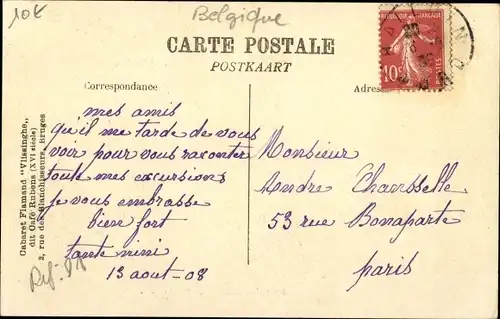 10€
Belgique
CARTE POSTALE
POSTKAART
Correspondance
mes amis
qu'il me tarde de vous
voir pour vous raconter
toute mes excursions
je vous embrasse
bien fort
tante nini
13 aout - 08
Monsieur
Andre
53 rue Bonaparte
paris
Cabaret Flamand "Vlissinghe",
dit Café Rubens (XVI siècle)
2, rue des Blanchisseurs, Bruges
REPUBLIQUE FRANÇAISE
10c
POSTES